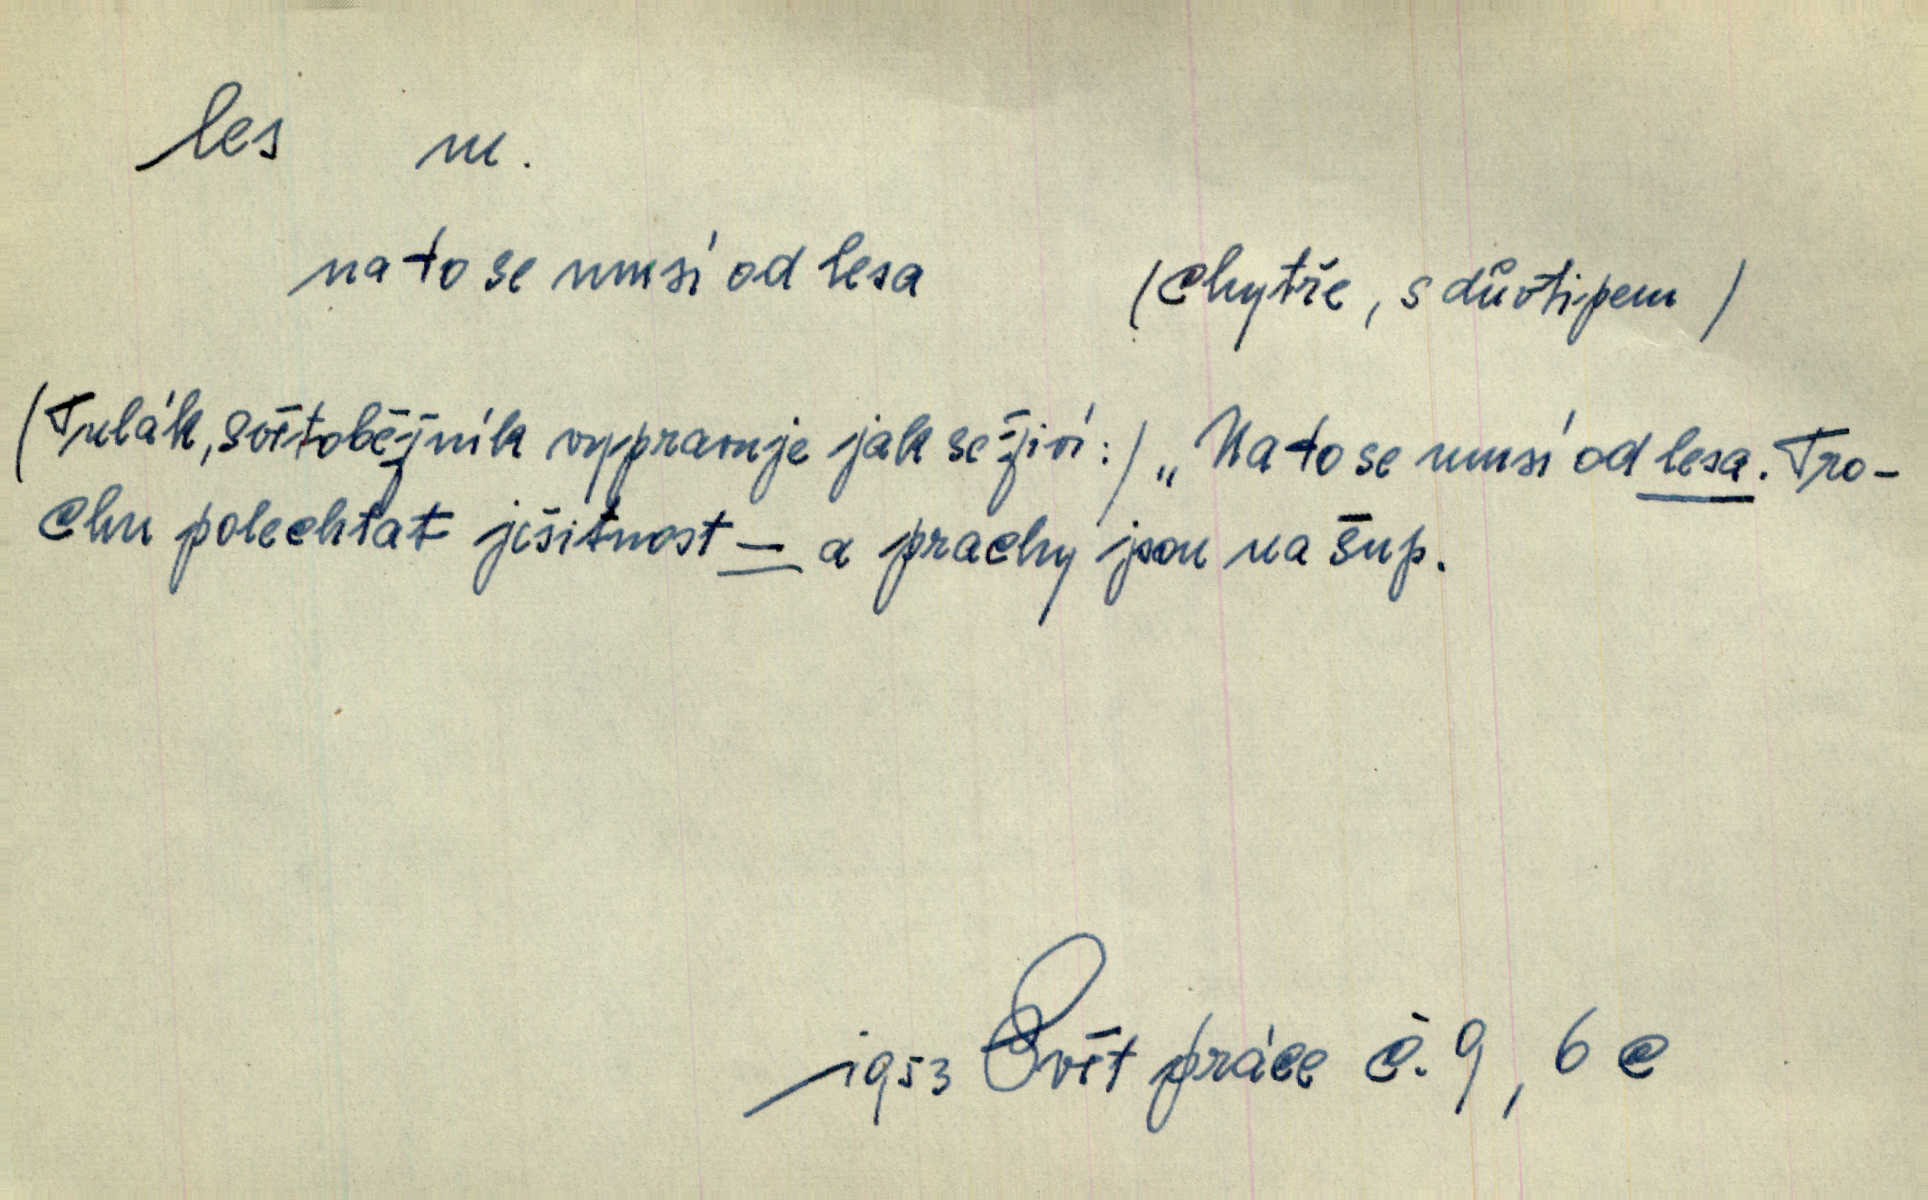 les m.
na to se musí od lesa (chytře, s důvtipem)
(Tulák, světoběžník vypravuje jak se živí:) „Na to se musí od lesa. Tro-
chu polechtat ješitnost — a prachy jsou na šup.
1953 Svět práce č. 9, 6 c